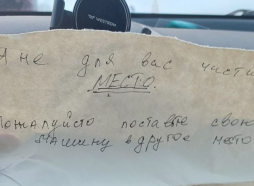 А не для вас чисти
МЕСТО.
Пожалуйсто поставьте свою
машину в другое место